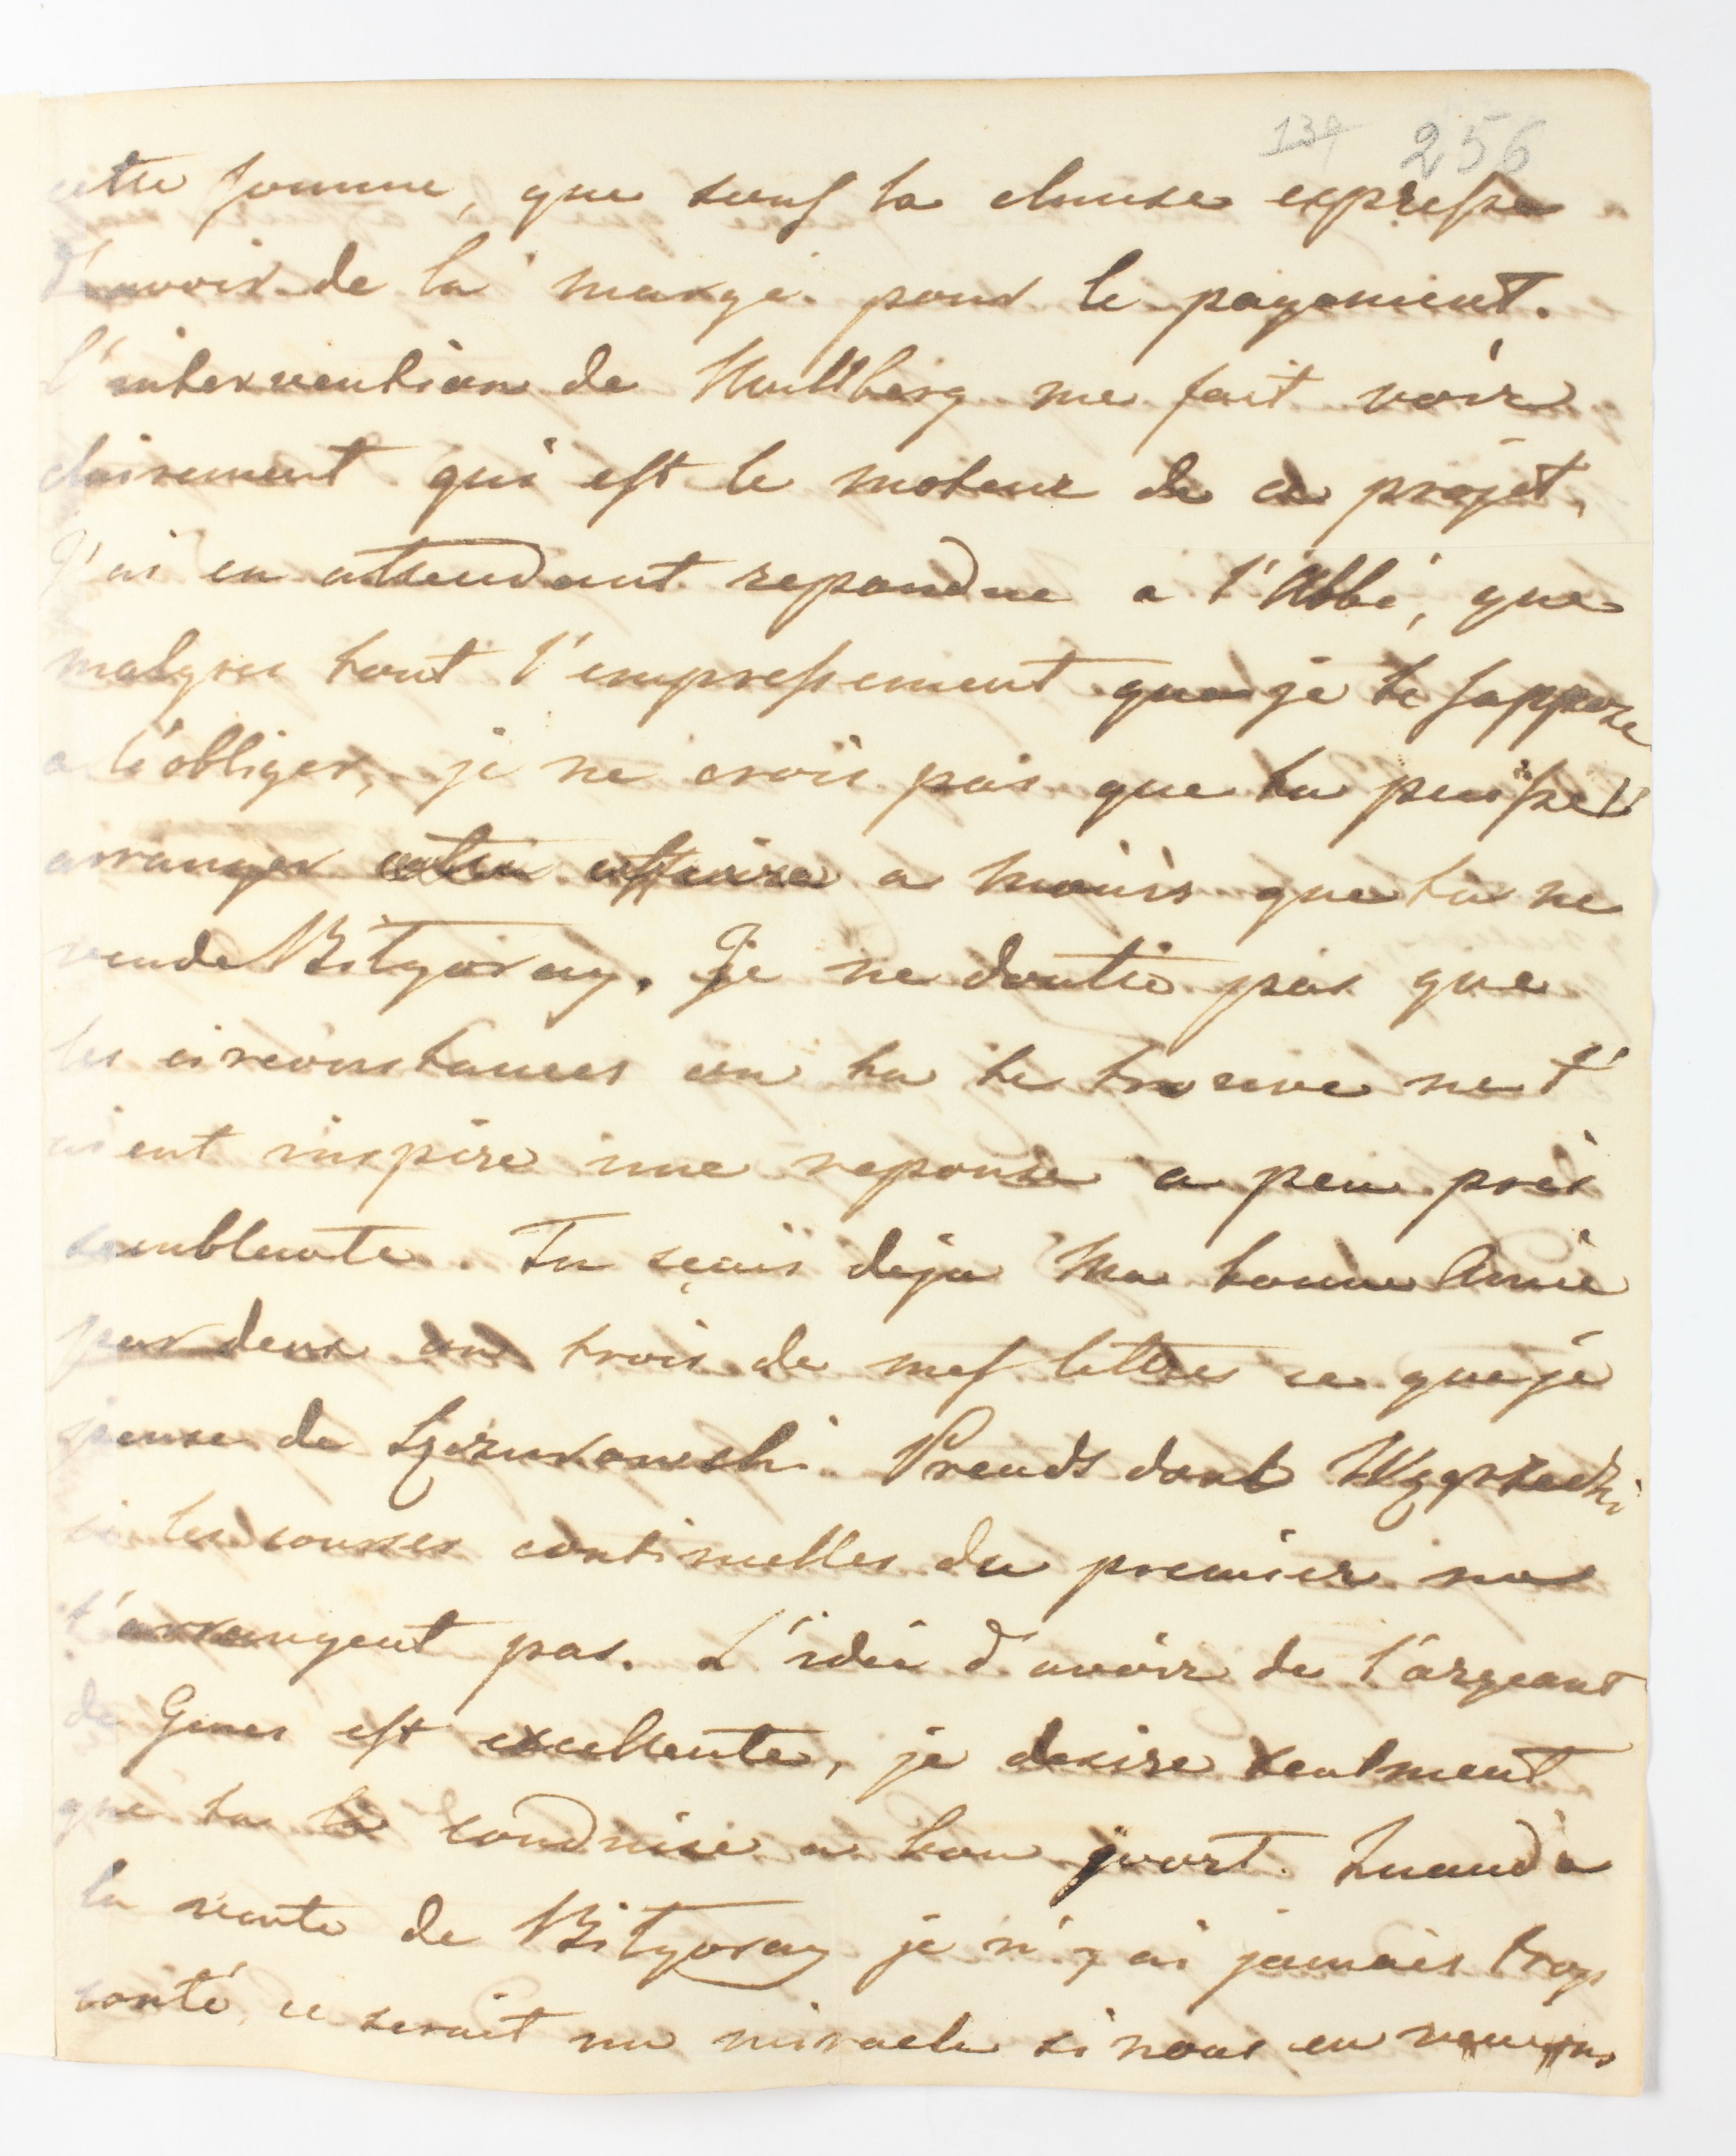 134 256
cette somme, que sauf la clause expresse
d'avoir de la marge pour le payement.
L'intervention de Hullberg me fait voir
clairement qui est le moteur de ce projet,
J'ai en attendant repondue a l'Abbé, que
malgres tout l'empressement que je te suppose
a l'obliger, je ne crois pas que tu puisses
arranger cette affaire a moins que tu ne
vende Bilgoray. Je ne doute pas que
les circonstances ou tu te trouve ne t'
aient inspire une reponse a peu près
semblente. Tu sçais deja Ma bonne Amie
par deux ou trois de mes lettres ce que je
pense de Szczurkowski. Prends donc Wyyrzecki
si les courses continuelles du premier ne
t'arrangent pas. L'idée d'avoir de l'argeant
de Genes est excellente, je desire seulment
que tu la conduise a bon port. Quand a
la vente de Bilgoray je n'y ai jamais trop
conté, ce serait un miracle si nous en venions